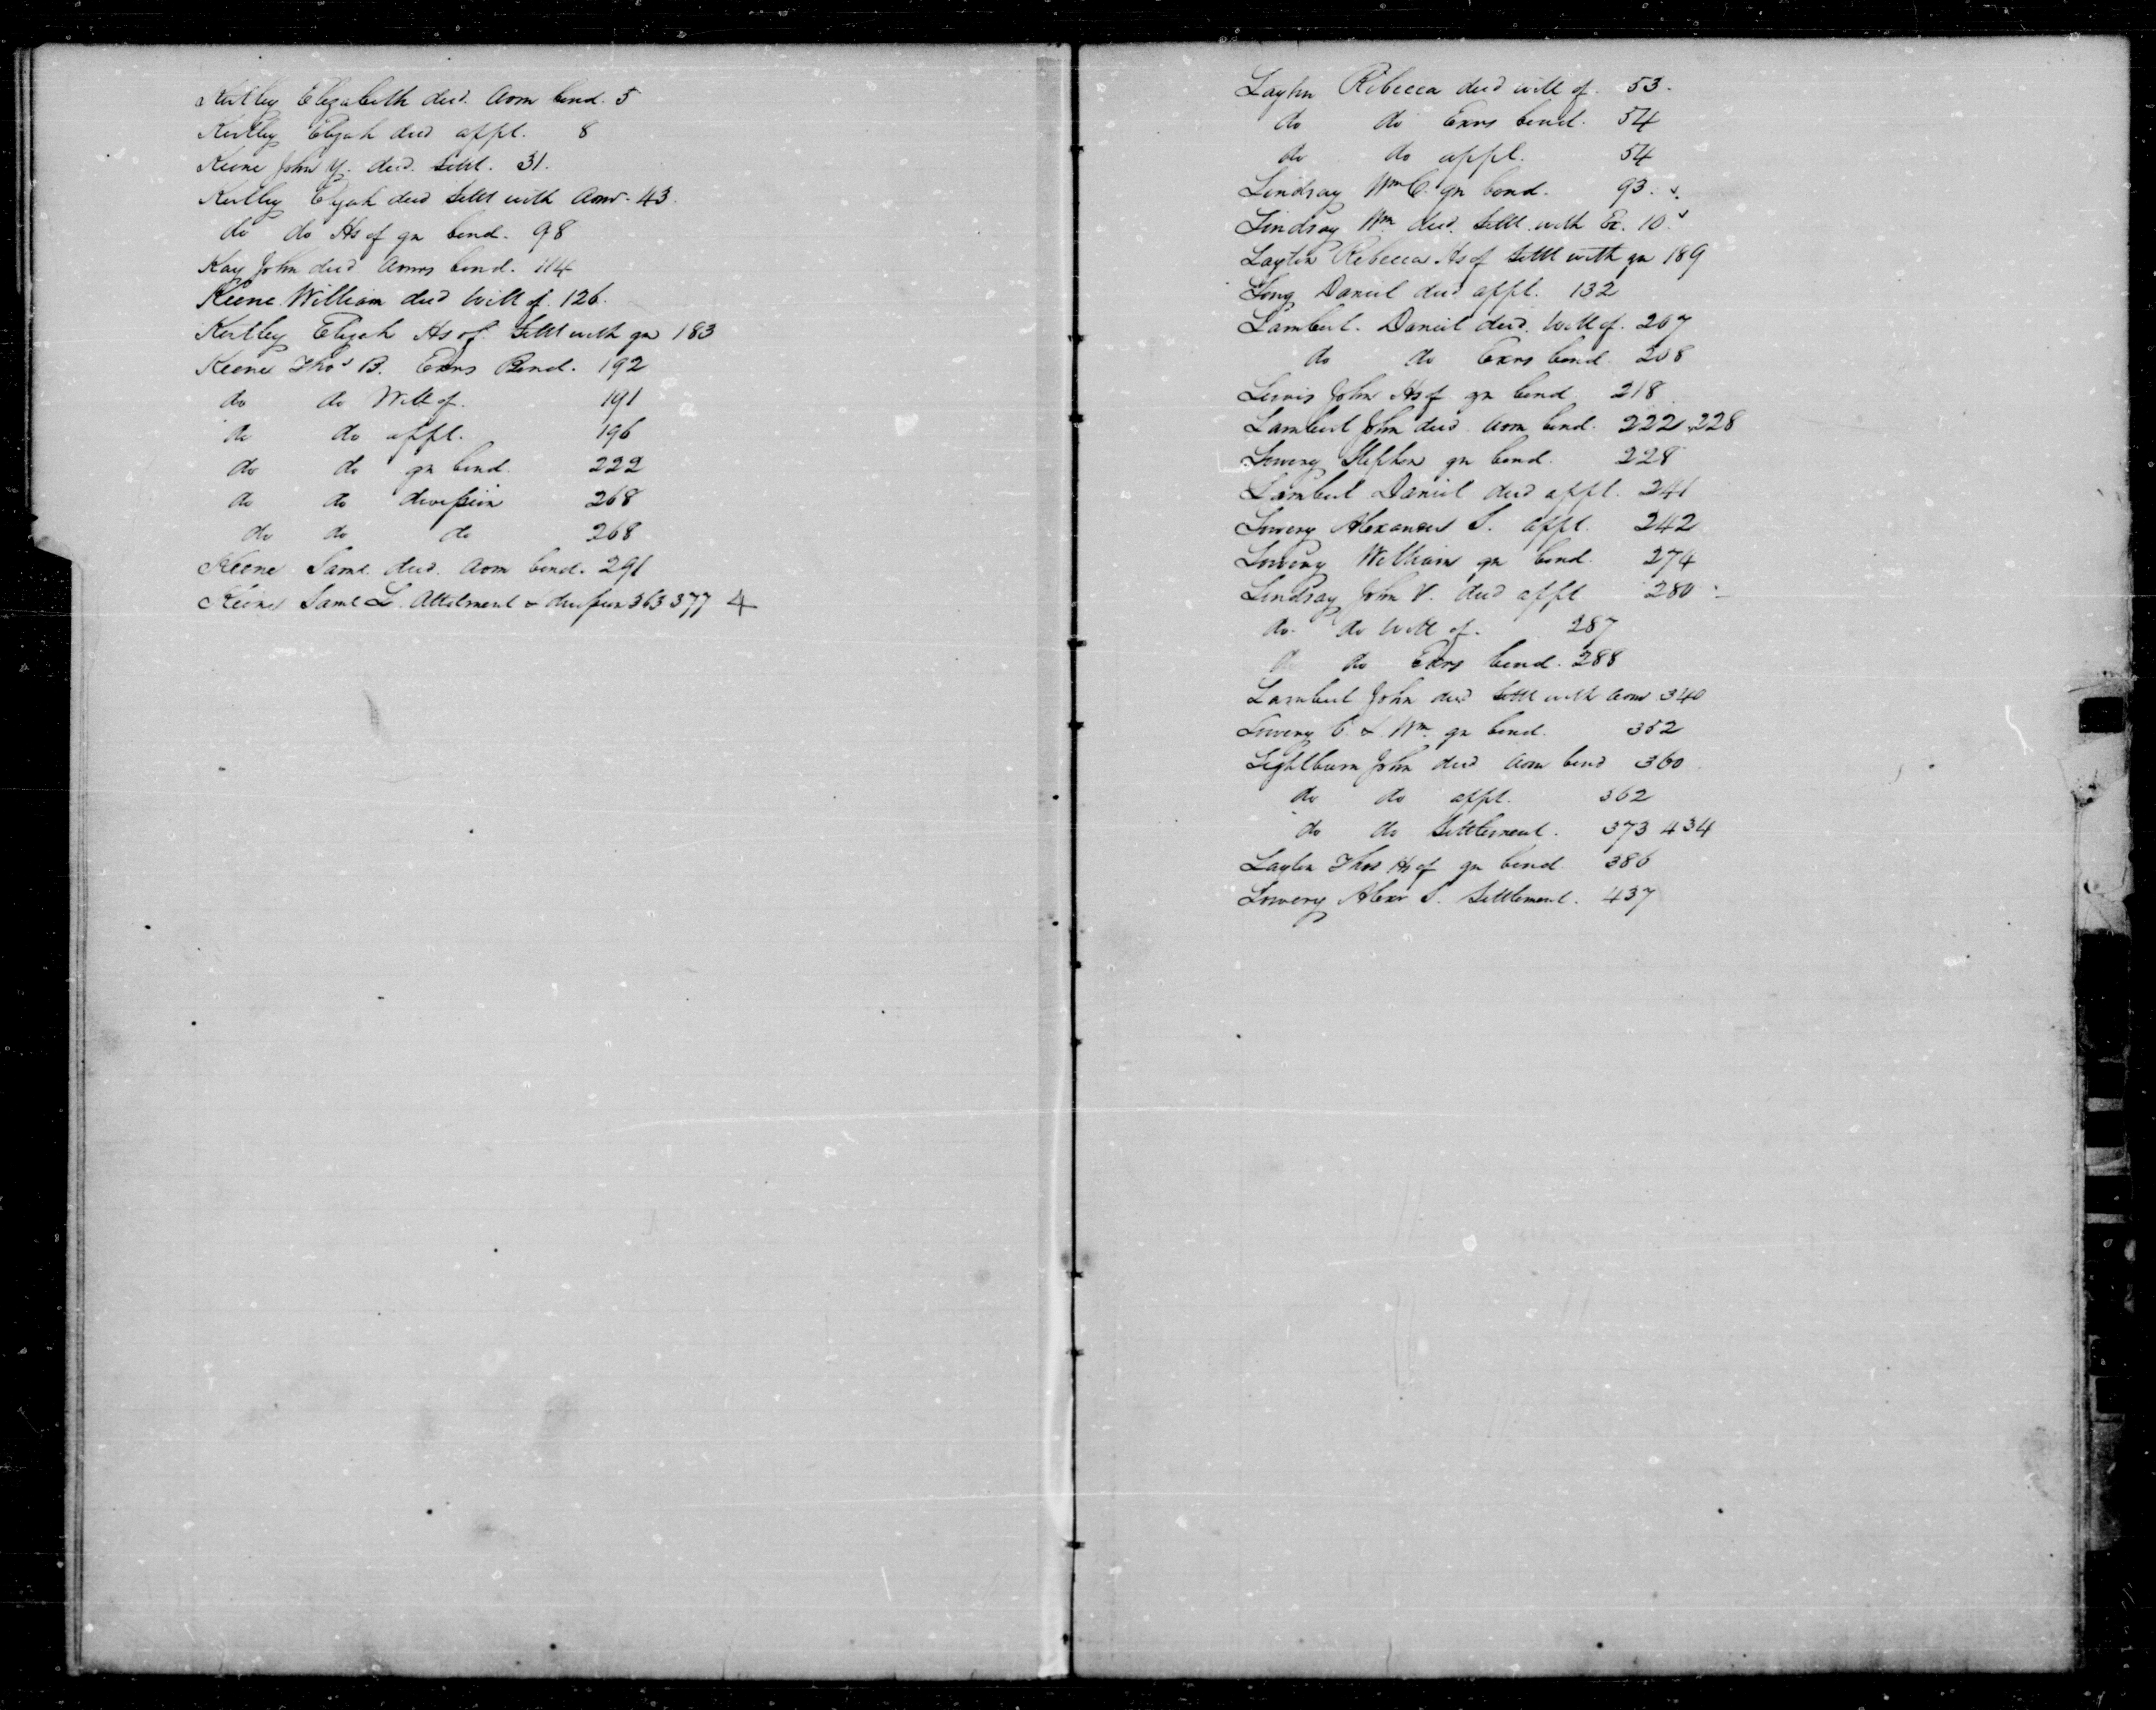 Kirtley Elizabeth decd. Adm bond. 5
Kirtley Elijah decd appt. 8
Keene John Y. decd. Settl. 31.
Kirtley Elijah decd Settl with Admr. 43.
do do Hs of gn bond. 98
Kay John decd Admrs bond. 114
Keene William decd Will of. 126.
Kirtley Elijah Hs of. Settl with gn 183
Keene Thos B. Exrs Bond. 192
do do Will of. 191
do do appt. 196
do do gn bond. 222
do do division 268
do do do 268
Keene Saml. decd. Adm bond. 291
Keene Saml L. Allotment & division 363 377 4
Layton Rebecca decd will of. 53.
do do Exrs bond. 54
do do appt. 54
Lindsay Wm C. gn bond. 93.
Lindsay Wm. decd. Settl. with Ex. 10
Layton Rebecca Hs of Settl with gn 189
Long Daniel decd appt. 132
Lambert. Daniel decd. Will of. 207
do do Exrs bond 208
Lewis John Hs of gn bond 218
Lambert John decd Adm bond. 222, 228
Lowery Stephen gn bond. 228
Lambert Daniel decd appt. 241
Lowery Alexander S. appt. 242
Lowery William gn bond. 274
Lindsay John V. decd appt 280
do. do Will of. 287
do do Exrs bond. 288
Lambert John decd Settl with Admr 340
Lowery C. & Wm. gn bond. 352
Lightburn John decd Adm bond 360
do do appt. 362
do do Settlement. 373 434
Layton Thos Hs of gn bond. 386
Lowery Alexr S. Settlement. 437